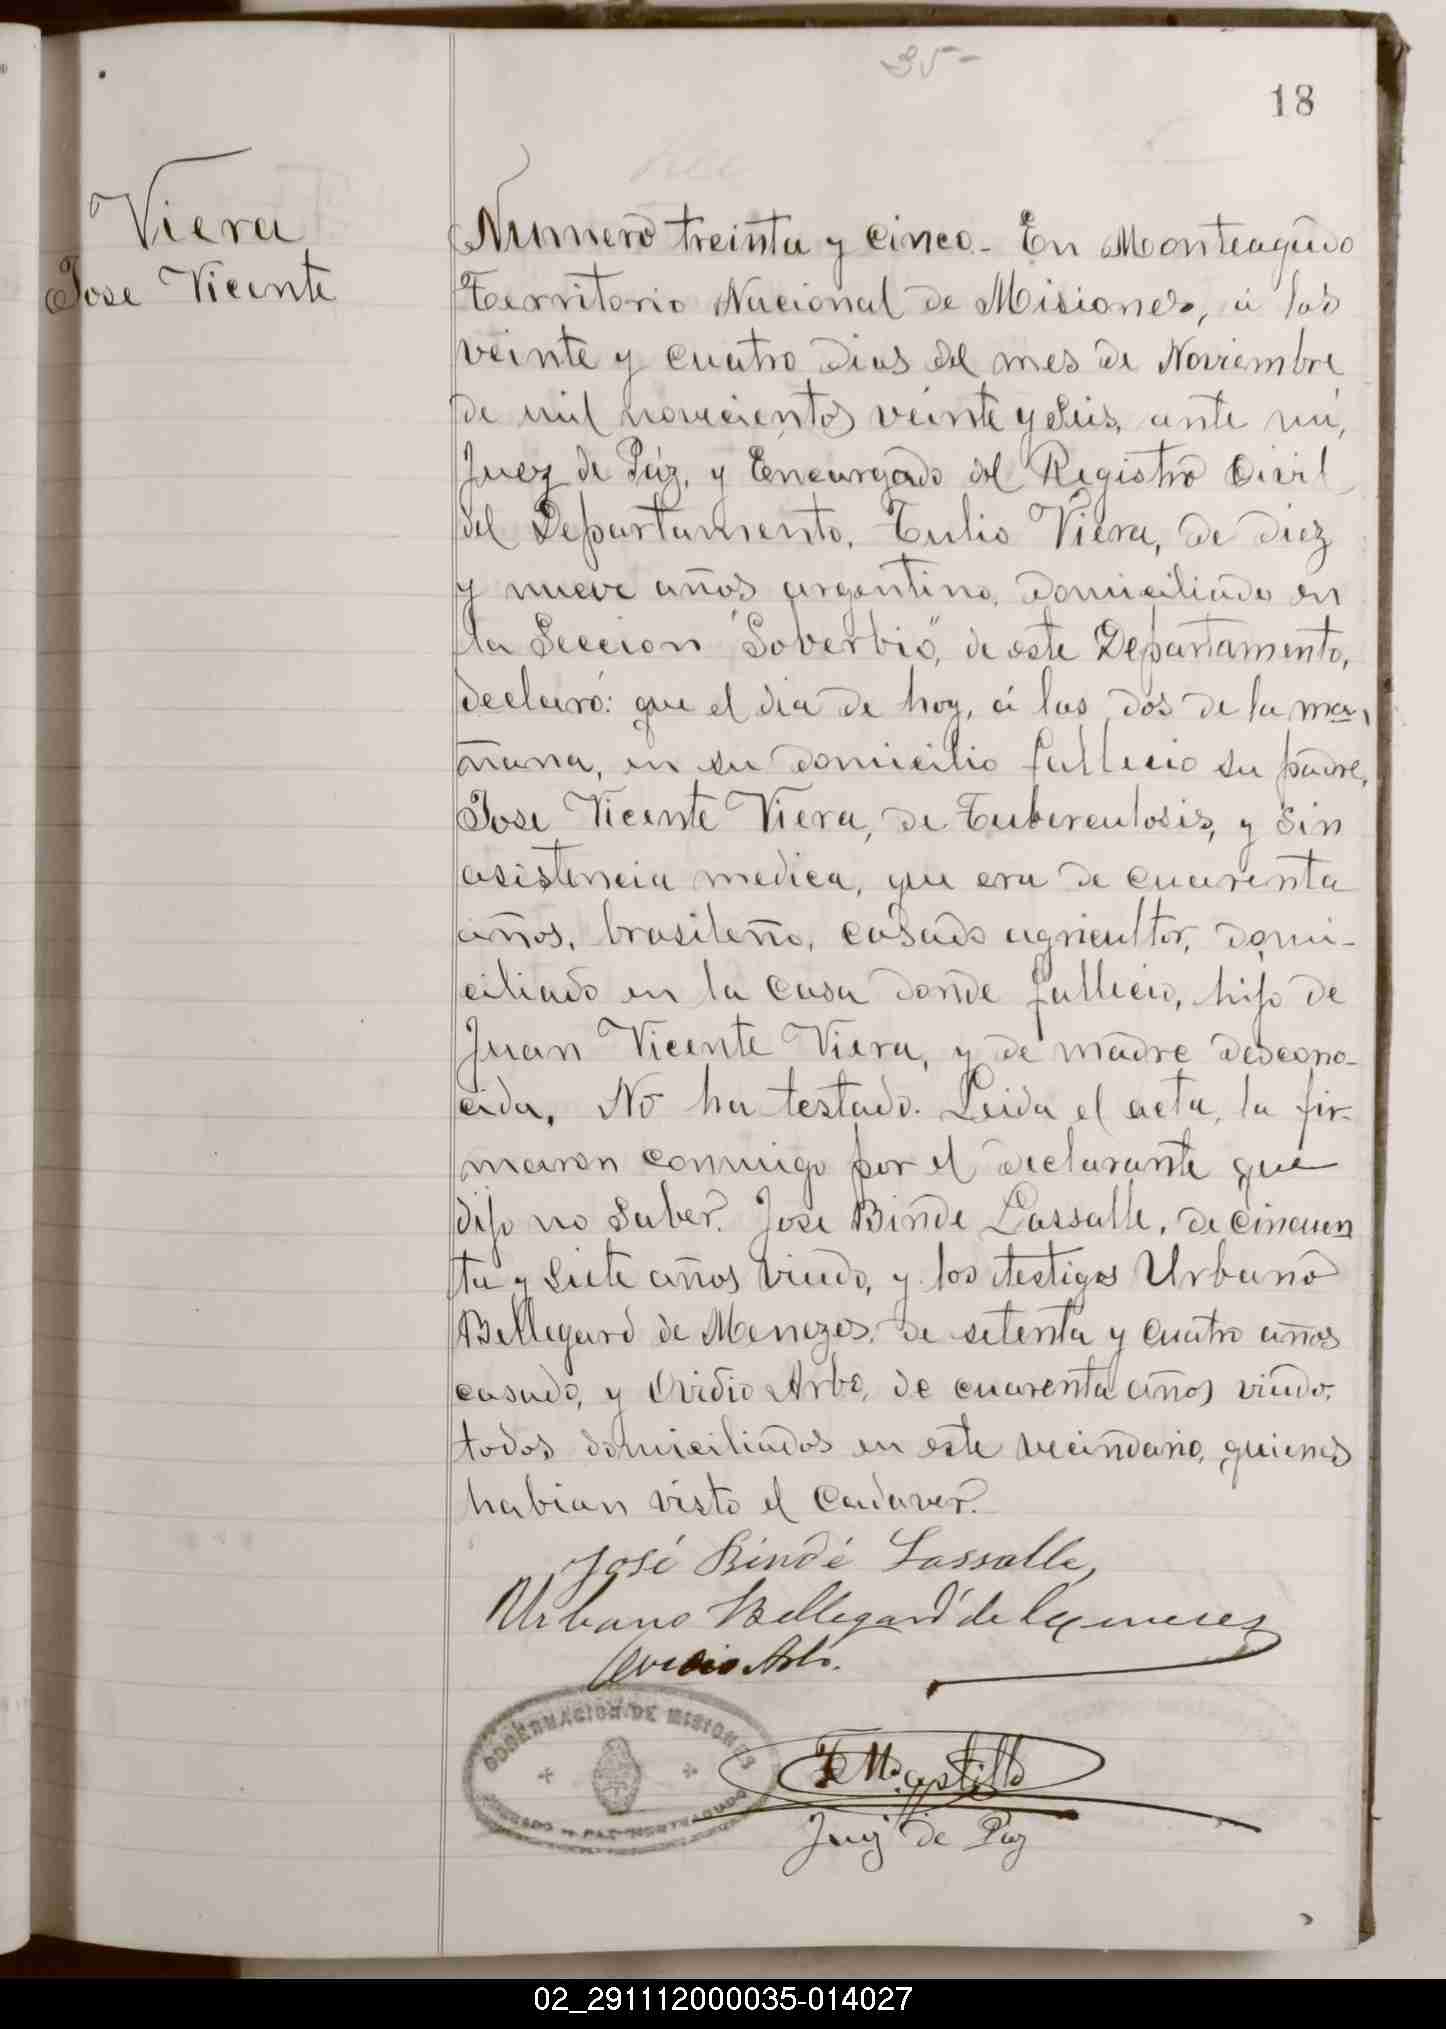 35-
18
Viera
Jose Vicente
Numero treinta y cinco.- En Monteagudo
Territorio Nacional de Misiones, á los
veinte y cuatro dias del mes de Noviembre
de mil novecientos veinte y seis, ante mi,
Juez de Páz, y Encargado del Registro Civil
del Departamento, Tulio Viera, de diez
y nueve años argentino, domiciliado en
la Seccion "Soverbio", de este Departamento,
declaró: que el dia de hoy, á las dos de la ma,
ñana, en su domicilio fallecio su padre,
Jose Vicente Viera, de Tuberculosis, y sin
asistencia medica, que era de cuarenta
años, brasileño, casado agricultor, domi-
ciliado en la casa donde fallecio, hijo de
Juan Vicente Viera, y de madre descono-
cida. No ha testado. Leida el acta, la fir-
maron conmigo por el declarante que
dijo no saber. Jose Binde Lassalle, de cincuen
ta y siete años viudo, y los testigos Urbano
Bellegard de Menezes, de setenta y cuatro años
casado, y Ovidio Arbo, de cuarenta años viudo,
todos domiciliados en este vecindario, quienes
habian visto el cadaver.
José Bindé Lassalle,
Urbano Bellegard de Menezes
Ovidio Arbo.
GOBERNACION DE MISIONES
JUZGADO DE PAZ-MONTEAGUDO
Juez de Paz
02_291112000035-014027